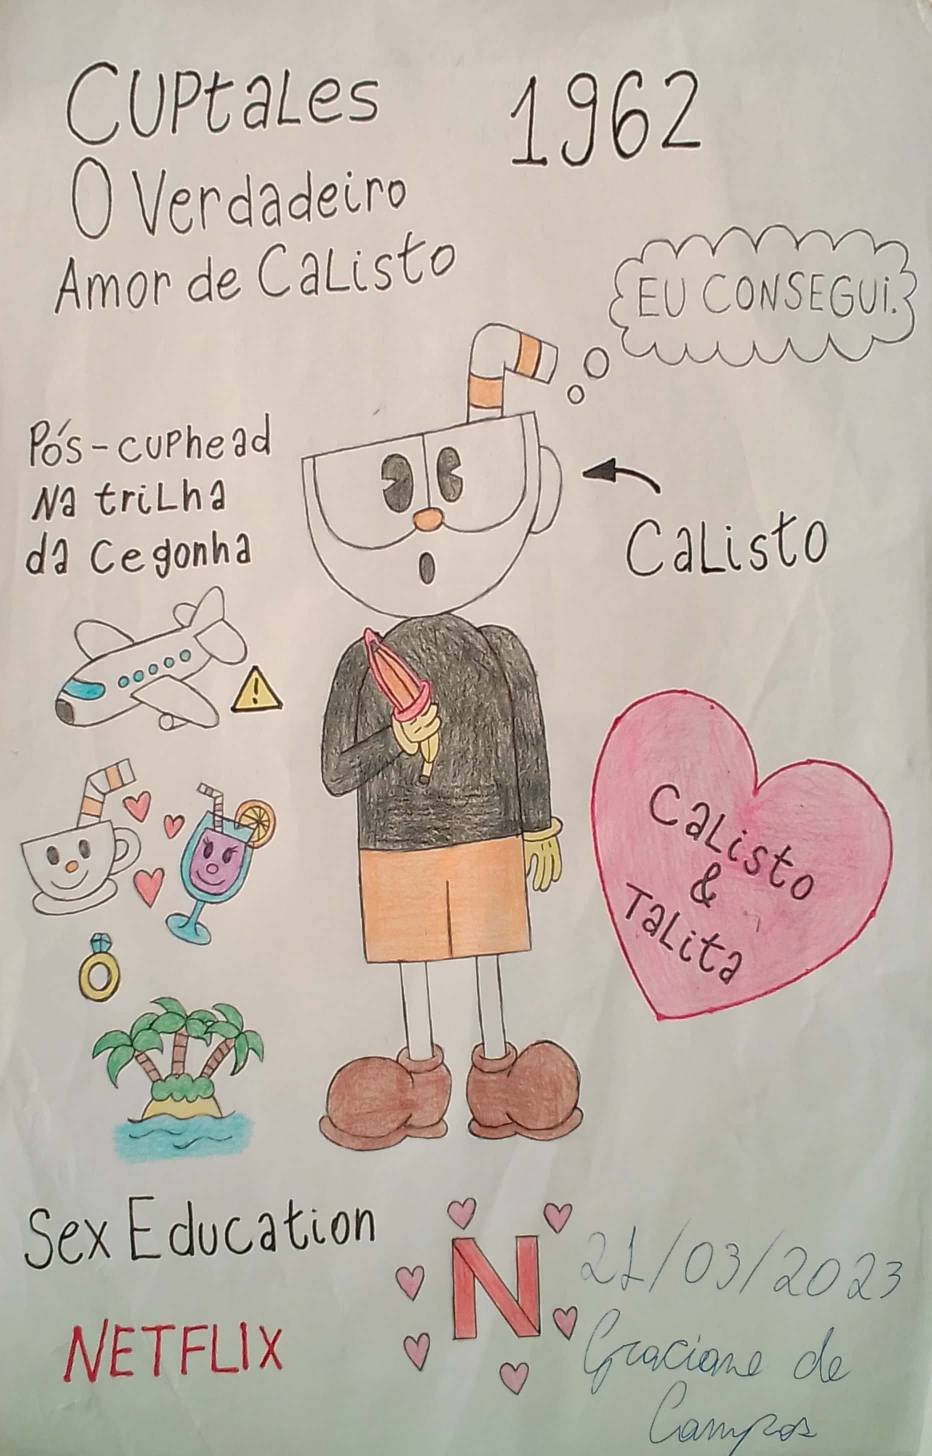 CUPtaLes
1962
O Verdadeiro
Amor de CaListo
EU CONSEGUi.
Pós-cuphead
Na triLha
da cegonha
CaListo
CaListo
&
TaLita
Sex Education
NETFLIX
N
21/03/2023
Graciane de
Campos